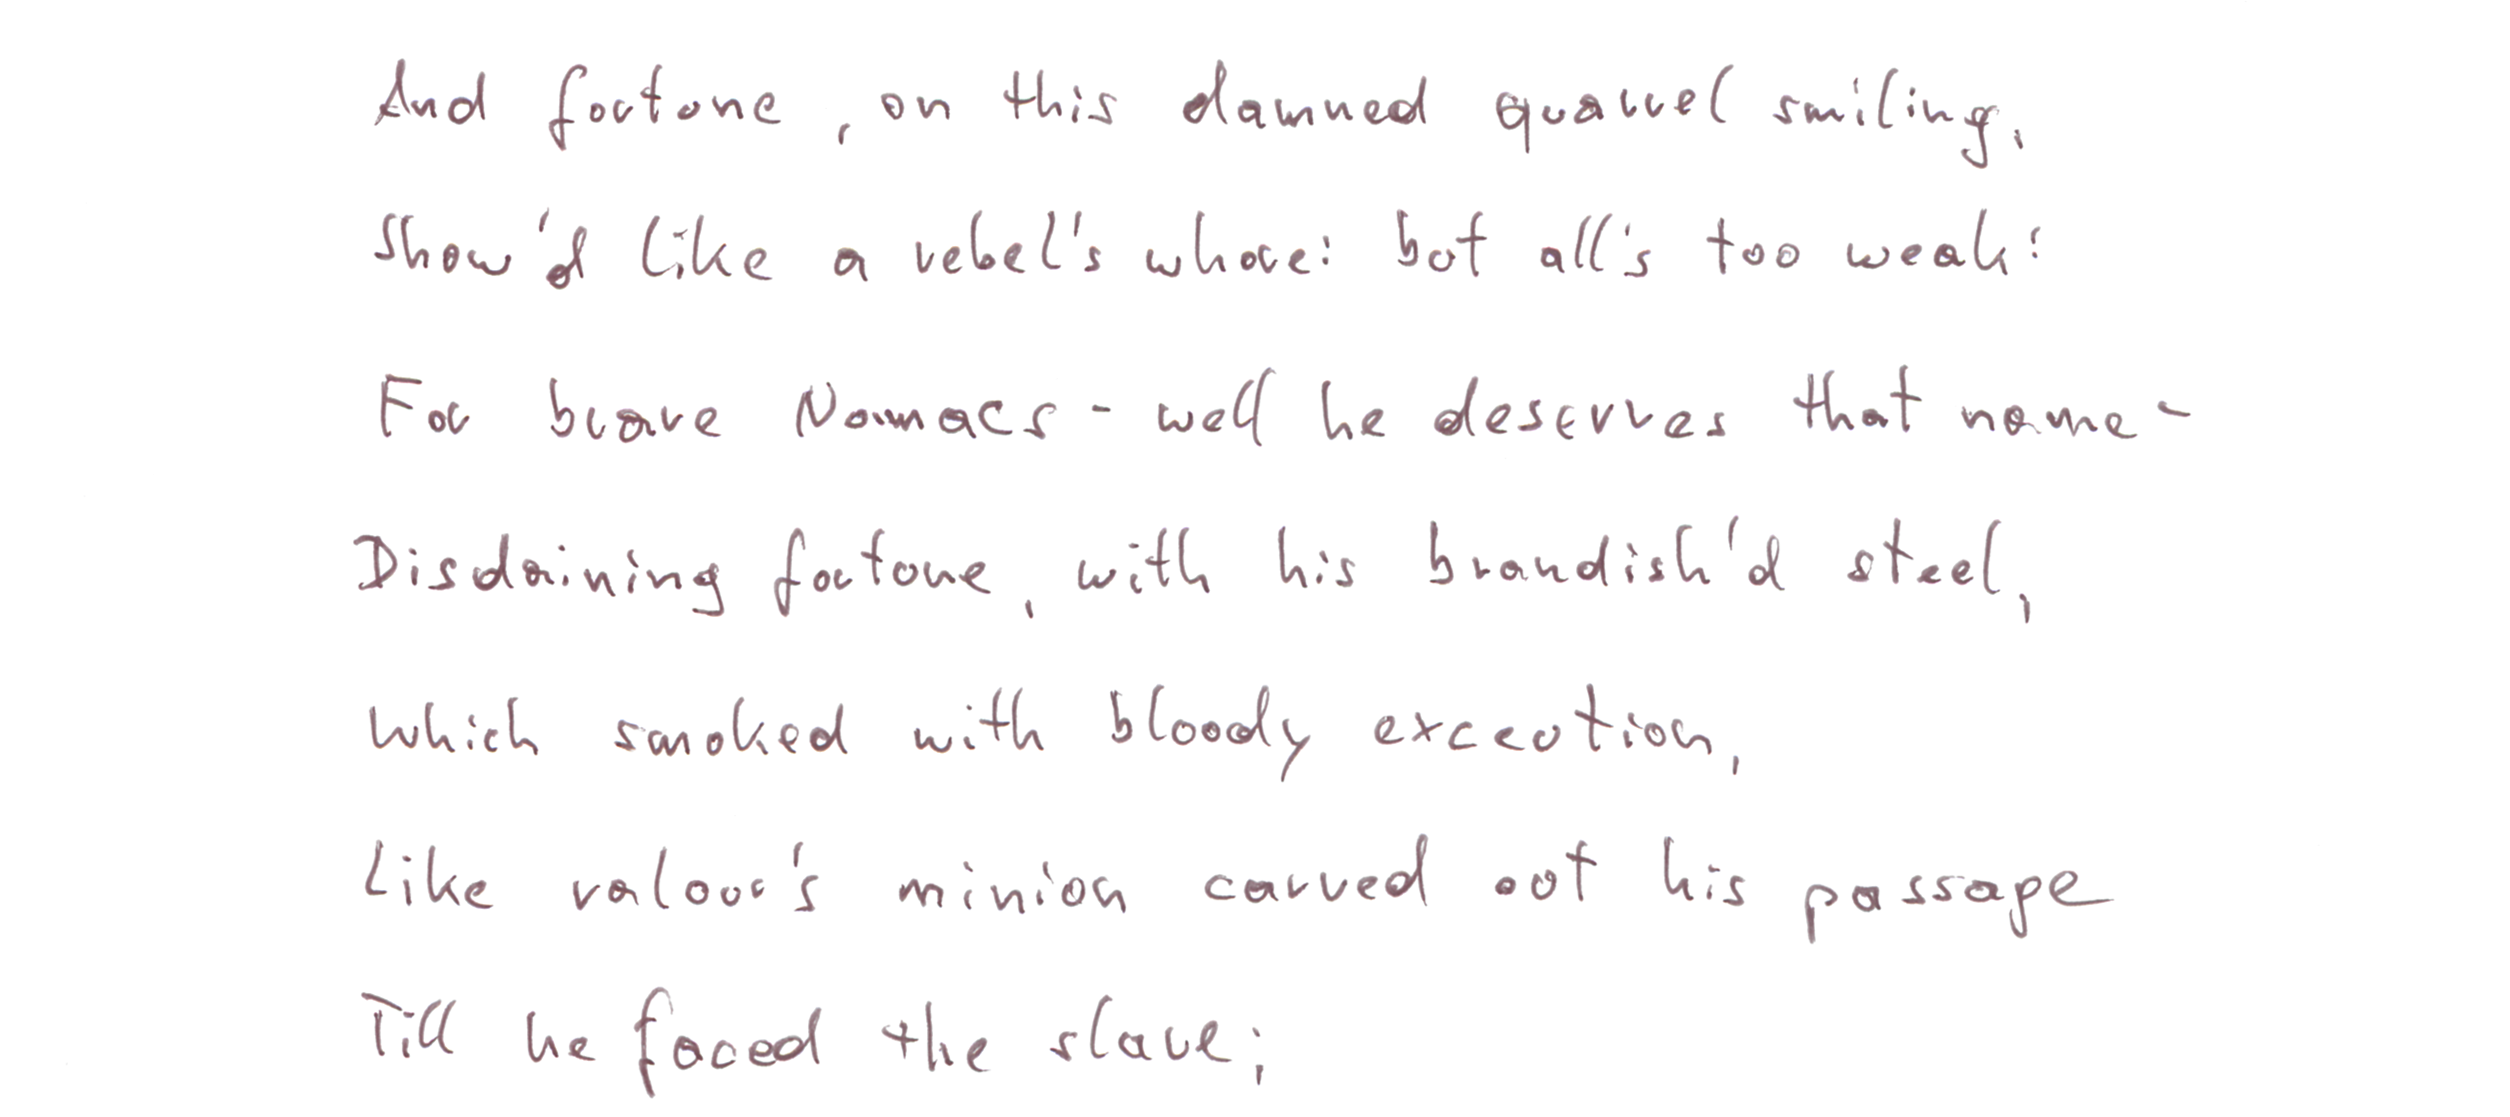 And fortune, on this damned quarrel smiling,
Show'd like a rebel's whore: but all's too weak:
For brave Nomacs - well he deserves that name -
Disdaining fortune, with his brandish'd steel,
Which smoked with bloody execution,
Like valour's minion carved out his passage
Till he faced the slave;